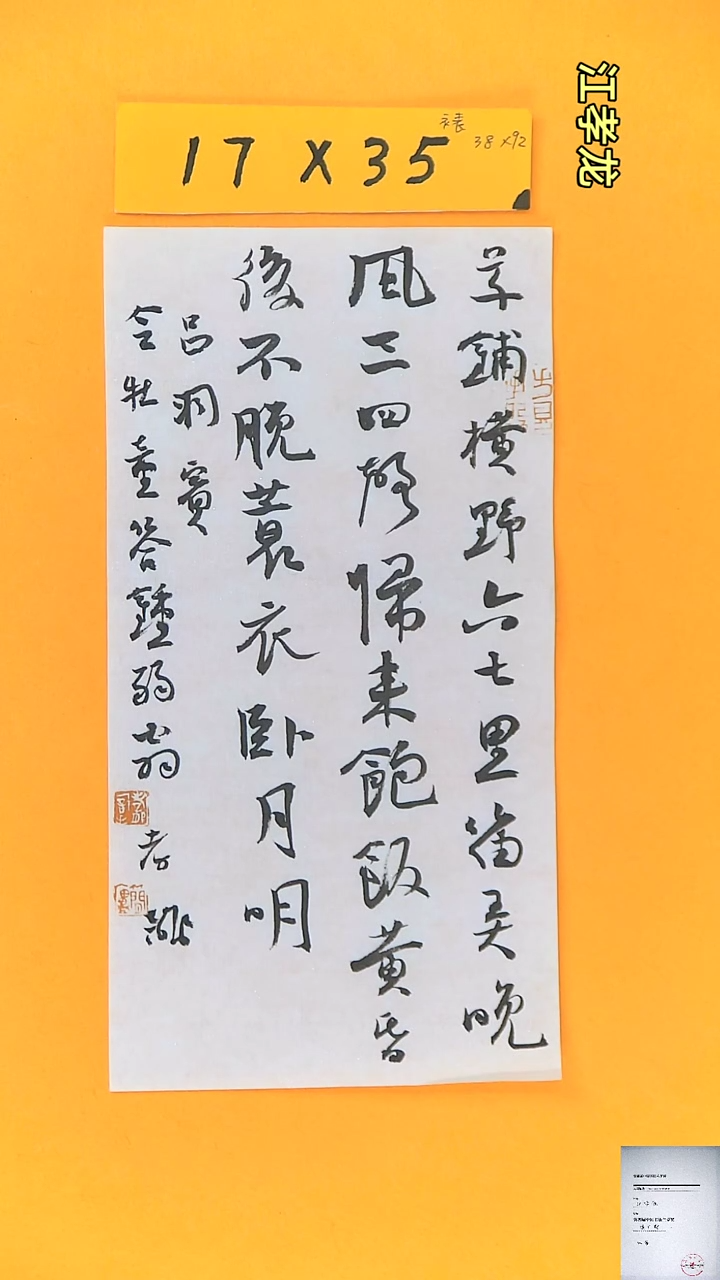 江孝龙
17 X 35
裱
38 x92
草鋪橫野六七里笛弄晚
風三四聲歸來飽飯黃昏
後不脫蓑衣臥月明
呂洞賓
令牧童答鍾弱翁
孝龍